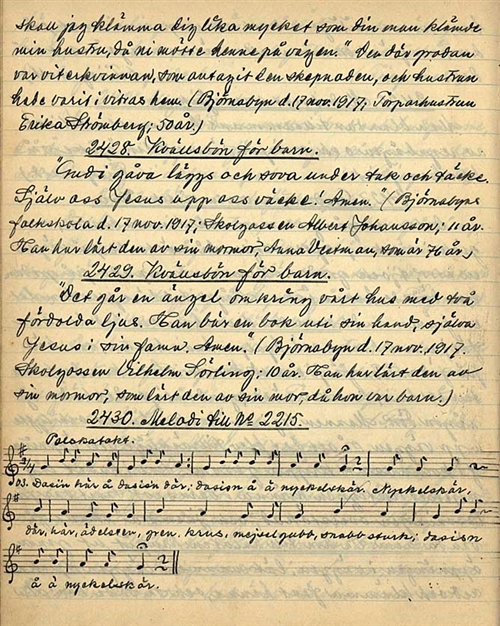 skall jag klämma dig lika mycket som din man klämde
min hustru, då ni mötte henne på vägen." Den där grodan
var viterkvinnan, som antagit den skepnaden, och hustrun
hade varit i vitras hem. (Björnabyn d. 17 nov. 1917; Torparhustrun
Erika Strömberg; 50 år.)
2428. Kvällsbön för barn.
"Gud i gåva läggs och sova under tak och täcke.
Själv oss Jesus upp oss väcke! Amen." (Björnabyns
folkskola d. 17 nov. 1917; Skolgossen Albert Johansson; 11 år.
Han har lärt den av sin mormor, Anna Vestman, som är 76 år.)
2429. Kvällsbön för barn.
"Det går en ängel omkring vårt hus med två
förgolda ljus. Han bär en bok uti sin hand, själva
Jesus i sin famn. Amen." (Björnabyn d. 17 nov. 1917.
Skolgossen Vilhelm Sörling; 10 år. Han har lärt den av
sin mormor, som lärt den av sin mor, då hon var barn.)
2430. Melodi till No 2215.
Polskatakt.
3/4
03. Dasin här å dasisn där; dasisn å å nyckelskär. Nyckelskär,
där, här, ädelsten, gren, krus, mejselgubb, snabb stark; dasisn
å å nyckelskär.